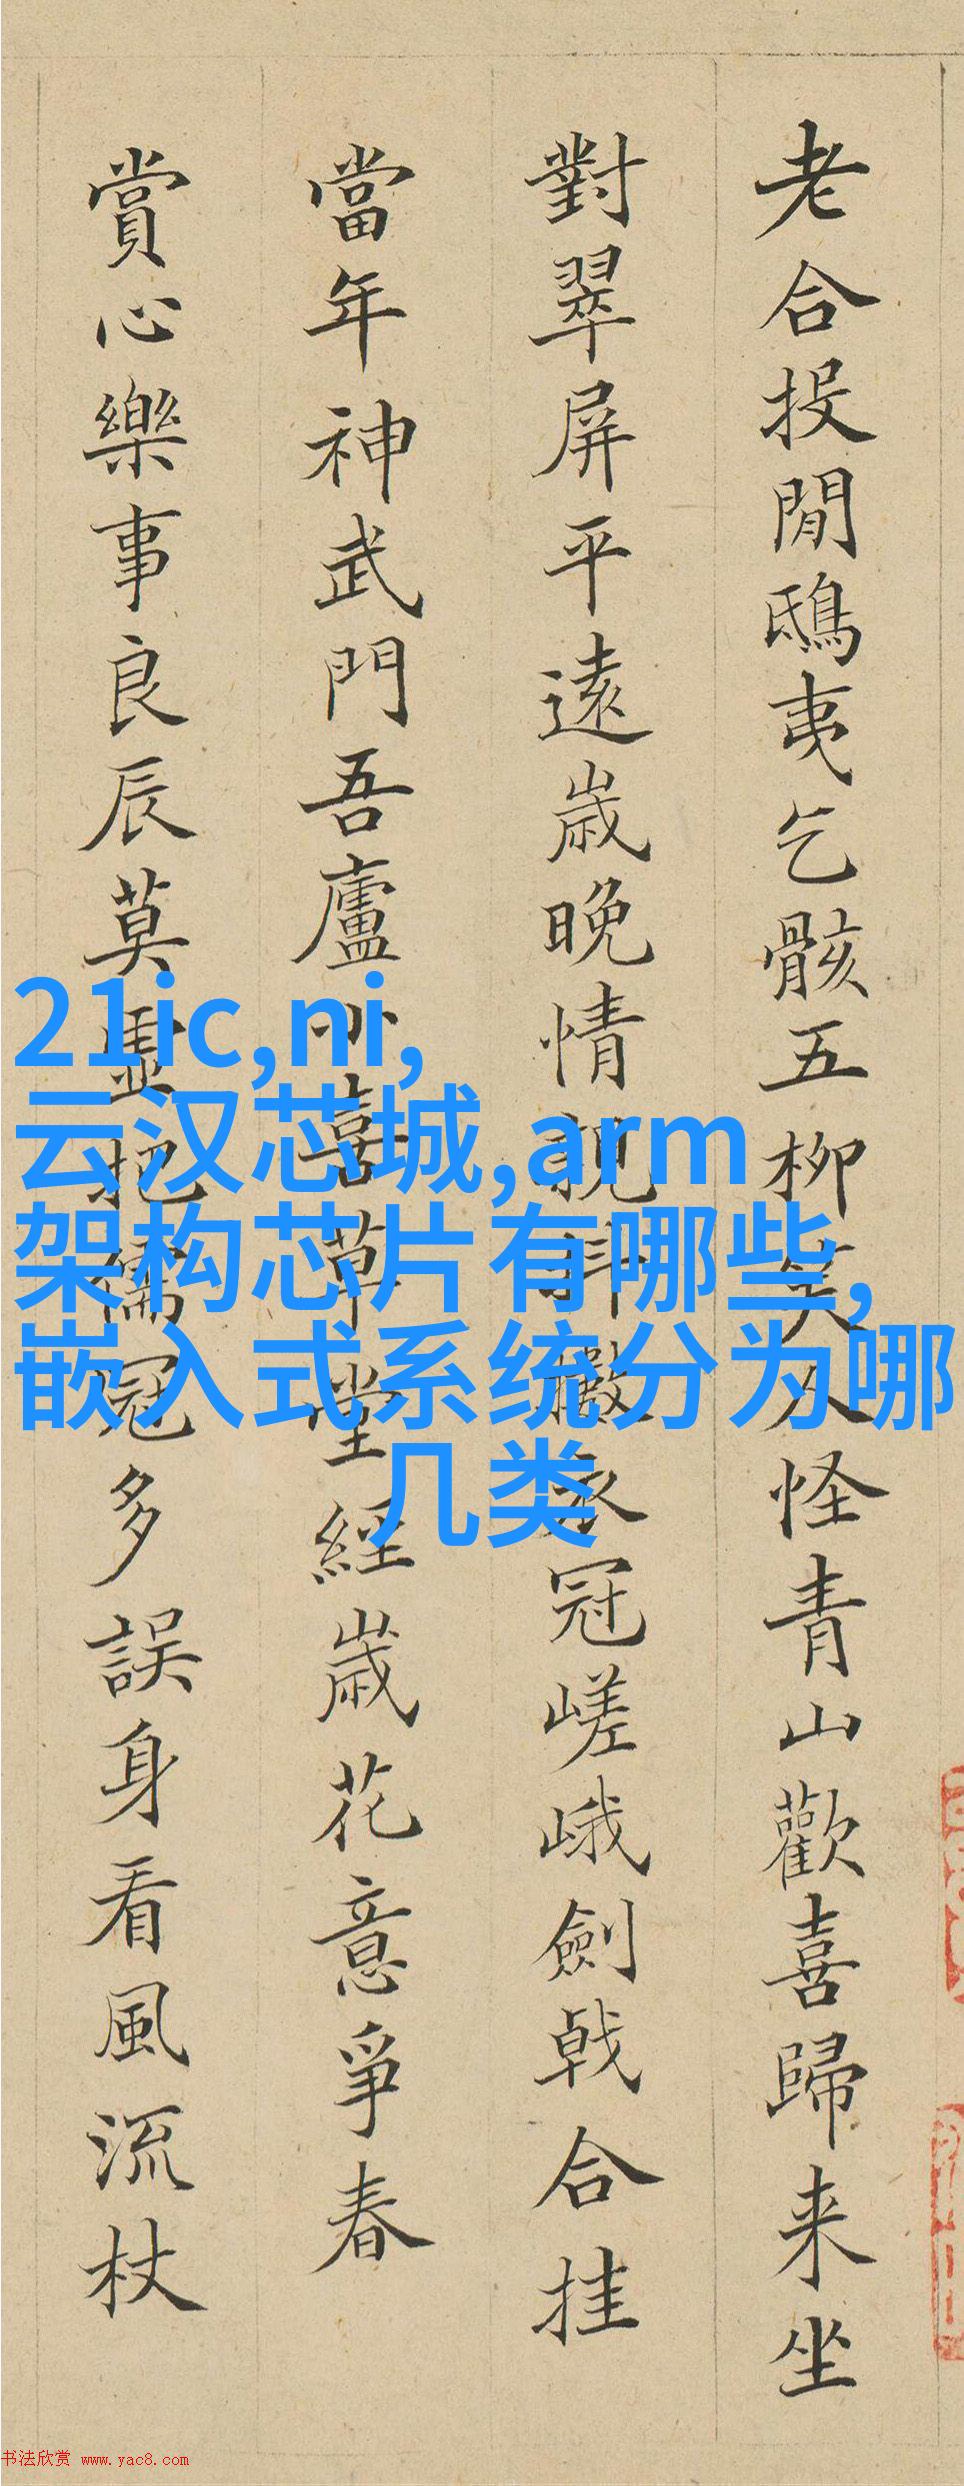 老合投閒鴟夷乞骸五柳笑人怪青山歡喜歸来坐
對翠屏平遠歲晚情親抖擻衣冠嵯峨劍戟合挂
當年神武門吾廬喜草堂經歲花意爭春
賞心樂事良辰莫虛把儒冠多誤身看風流杖
21ic,ni,
云汉芯城,arm
架构芯片有哪些,
嵌入式系统分为哪
几类
书法欣赏 www.yac8.com